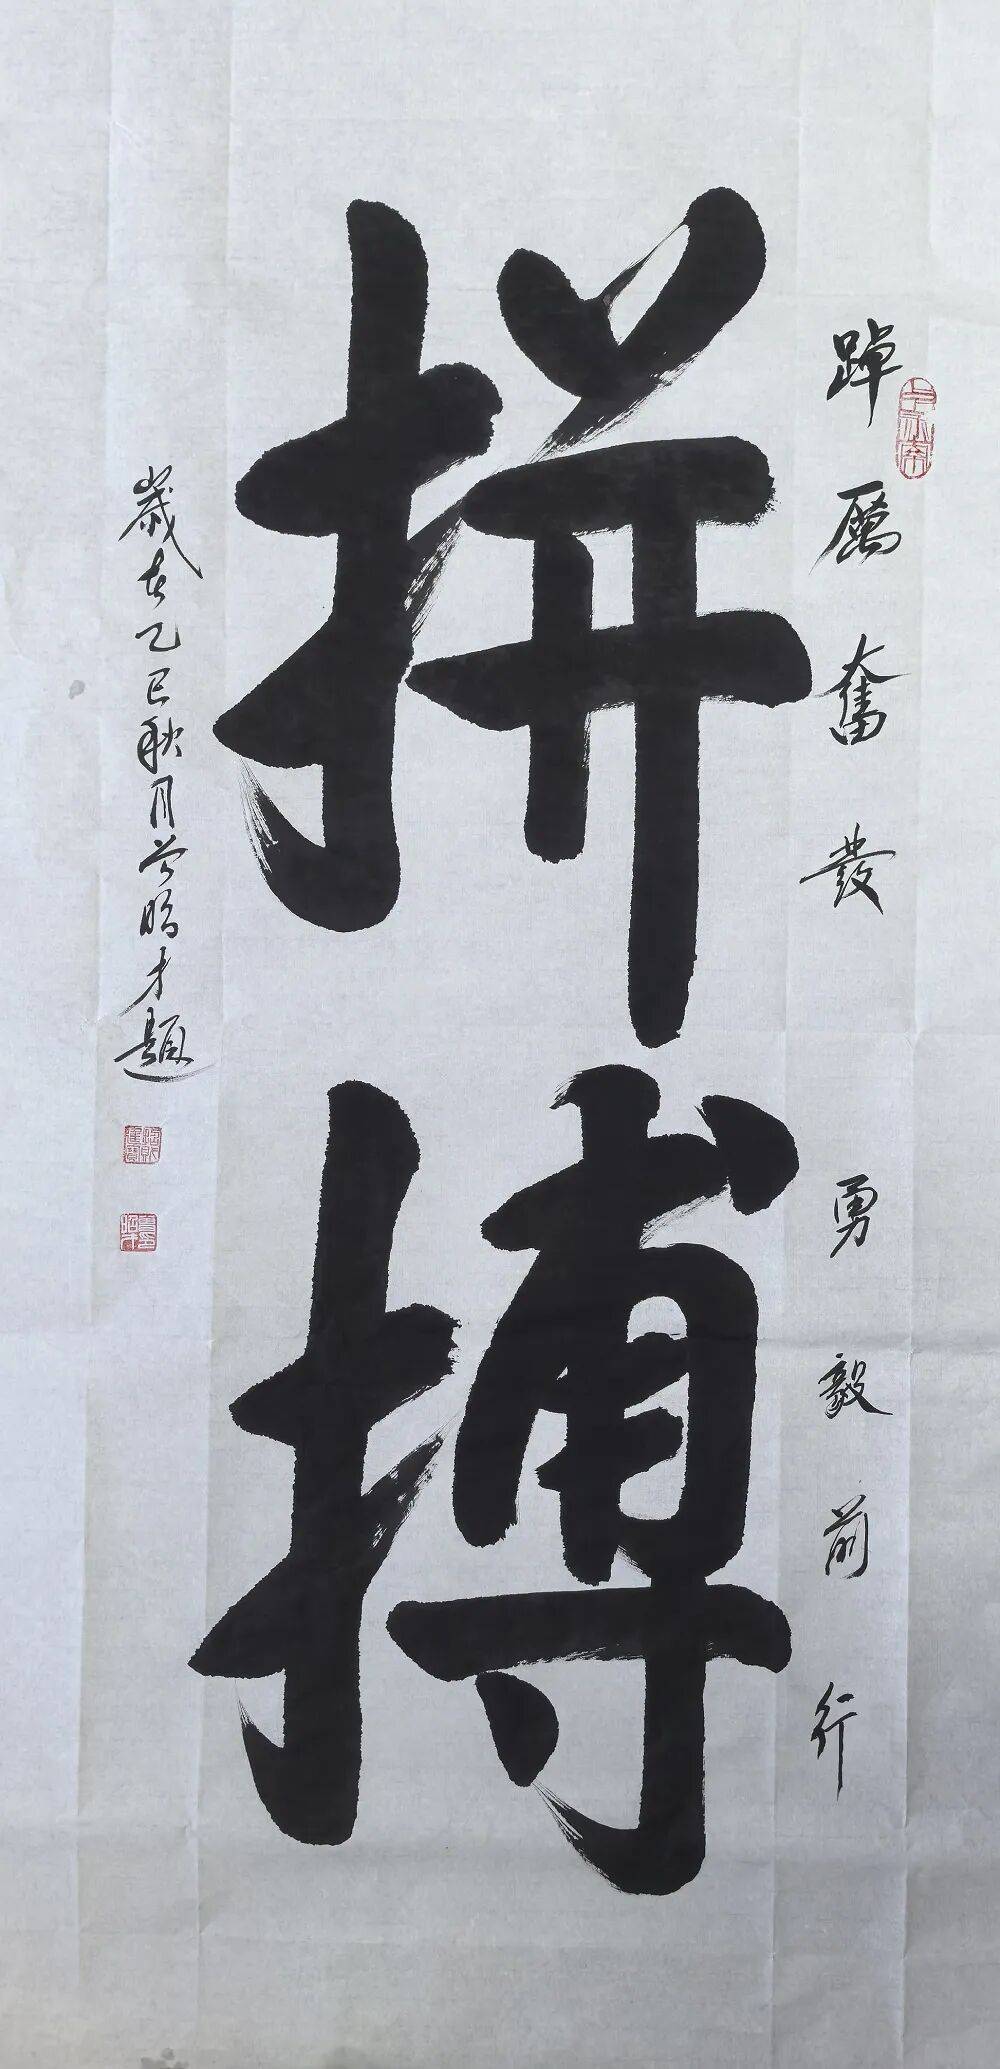 踔厲奮發 勇毅前行
拼搏
歲在乙巳秋月曾昭才題